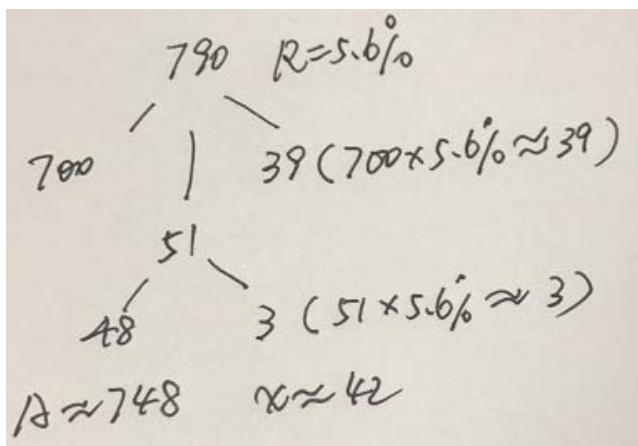 790 R=5.6%
700 39(700×5.6%≈39)
51
48 3(51×5.6%≈3)
A≈748 x≈42